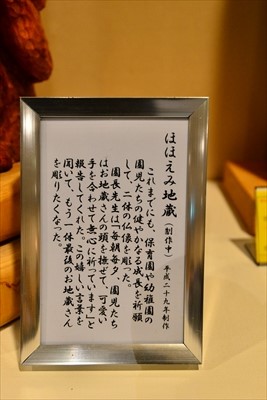 ほほえみ地蔵(制作中) 平成二十九年制作
これまでにも、保育園や幼稚園の
園児たちの健やかなる成長を祈願
して、二体の仏像を彫った。
園長先生は「毎朝毎夕、園児たち
はお地蔵さんの頭を撫ぜて、可愛い
手を合わせて無心に祈っています」と
報告してくれた。この嬉しい言葉を
聞いて、もう一体最後のお地蔵さん
を彫りたくなった。